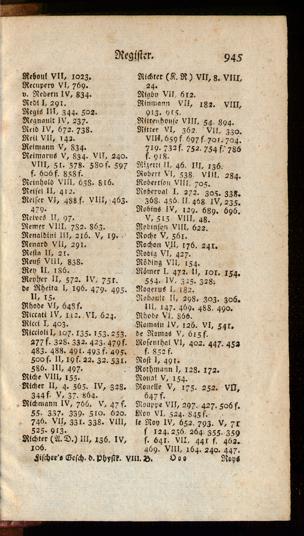 Register. 945
Reboul VII, 1023.
Recupero VI, 769.
v. Redern IV, 834.
Redi I, 291.
Regis III, 344. 502.
Regnault IV, 237.
Reid IV, 672. 738.
Reil VII, 142.
Reimann V, 834.
Reimarus V, 834. VII, 240.
VIII, 51. 578. 580 f. 597
f. 606 f. 858 f.
Reinhold VIII, 658. 816.
Reisel II, 412.
Reiser VI, 488 f. VIII, 463.
479.
Relves II, 97.
Remer VIII, 782. 863.
Renaldini III, 216. V, 19.
Renard VII, 291.
Resta II, 21.
Reuß VIII, 838.
Rey II, 186.
Reyher II, 572. IV, 751.
de Rheita I, 196. 479. 495.
II, 15.
Rhode VI, 648 f.
Riccati IV, 112. VI, 624.
Ricci I, 403.
Riccioli I, 107. 135. 153. 253.
277 f. 328. 332. 423. 479 f.
483. 488. 491. 493 f. 495.
500 f. II, 19 f. 22. 32. 531.
586. III, 497.
Riche VIII, 155.
Richer II, 4. 565. IV, 328.
344 f. V, 37. 864.
Richmann IV, 766. V, 47 f.
55. 337. 339. 510. 620.
746. VII, 331. 338. VIII,
525. 913.
Richter (A. D.) III, 136. IV,
106.
Richter (K. R.) VII, 8. VIII,
24.
Rigby VII, 612.
Rinmann VII, 182. VIII,
913. 915.
Rittenhouse VIII, 54. 894.
Ritter VI, 362. VII, 330.
VIII, 659 f. 697 f. 701-704.
719. 732 f. 752. 754 f. 786
f. 918.
Rizetti II, 46. III, 136.
Robert VI, 538. VIII, 284.
Robertson VIII, 705.
Roberval I, 272. 305. 338.
368. 456. II, 468. IV, 235.
Robins IV, 129. 689. 696.
V, 515. VIII, 48.
Robinson VIII, 622.
Roche V, 561.
Rochon VII, 176. 241.
Rohlg VI, 427.
Röding VII, 154.
Römer I, 472. II, 101. 154.
554. IV, 325. 328.
Rogerus I, 182.
Rohault II, 298. 303. 306.
III, 147. 469. 488. 490.
Rhode VI, 866.
Romain IV, 126. VI, 541.
de Romas V, 615 f.
Rosenthal VI, 402. 447. 452
f. 852 f.
Rost I, 491.
Rothmann I, 128. 172.
Rouat V, 154.
Rouelle V, 175. 252. VII,
647 f.
Rouppe VII, 297. 427. 506 f.
Roy VI, 524. 845 f.
le Roy IV, 652. 793. V, 71
f. 124. 256. 264. 355. 359
f. 641. VII, 441 f. 462.
469. VIII, 164. 240. 447.
Fischer's Gesch. d. Physik. VIII. B. O o o Roys